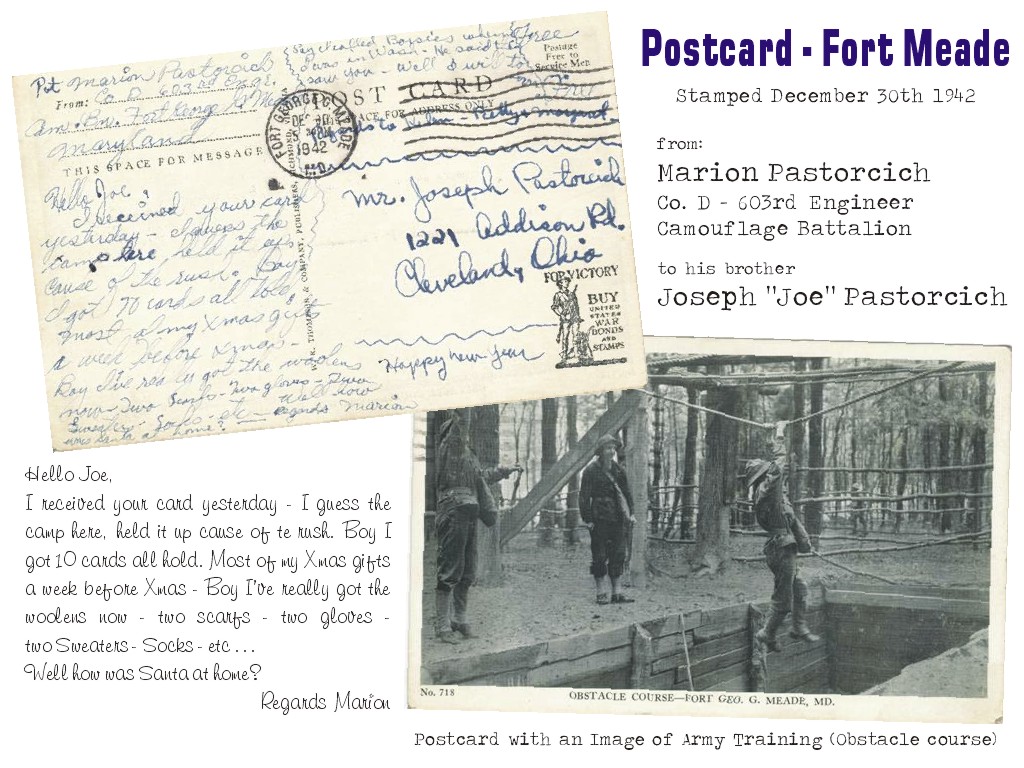 Postcard - Fort Meade
Stamped December 30th 1942
from:
Marion Pastorcich
Co. D - 603rd Engineer
Camouflage Battalion
to his brother
Joseph "Joe" Pastorcich
Pvt Marion Pastorcich
From: Co D 603rd Eng.
Maryland
THIS SPACE FOR MESSAGE
Hello Joe,
I received your card
yesterday - I guess the
camp here, held it up
cause of the rush. Boy
I got 70 cards all told.
most of my Xmas gifts
a week before Xmas -
Boy I've really got the woolens
now - Two Scarfs - Two gloves - Two
Sweaters - Socks - etc - Well how
was Santa at home? Regards Marion
Free
Postage
Free to
Service Men
POST CARD
SPACE FOR ADDRESS ONLY
FORT GEORGE G MEADE
DEC 30
5 PM
1942
MD.
Mr. Joseph Pastorcich
1221 Addison Rd.
Cleveland, Ohio
Happy New Year
FOR VICTORY
BUY
UNITED
STATES
WAR
BONDS
AND
STAMPS
Hello Joe,
I received your card yesterday - I guess the
camp here, held it up cause of te rush. Boy I
got 10 cards all hold. Most of my Xmas gifts
a week before Xmas - Boy I've really got the
woolens now - two scarfs - two gloves -
two Sweaters - Socks - etc ...
Well how was Santa at home?
Regards Marion
No. 718
OBSTACLE COURSE—FORT GEO. G. MEADE, MD.
Postcard with an Image of Army Training (Obstacle course)